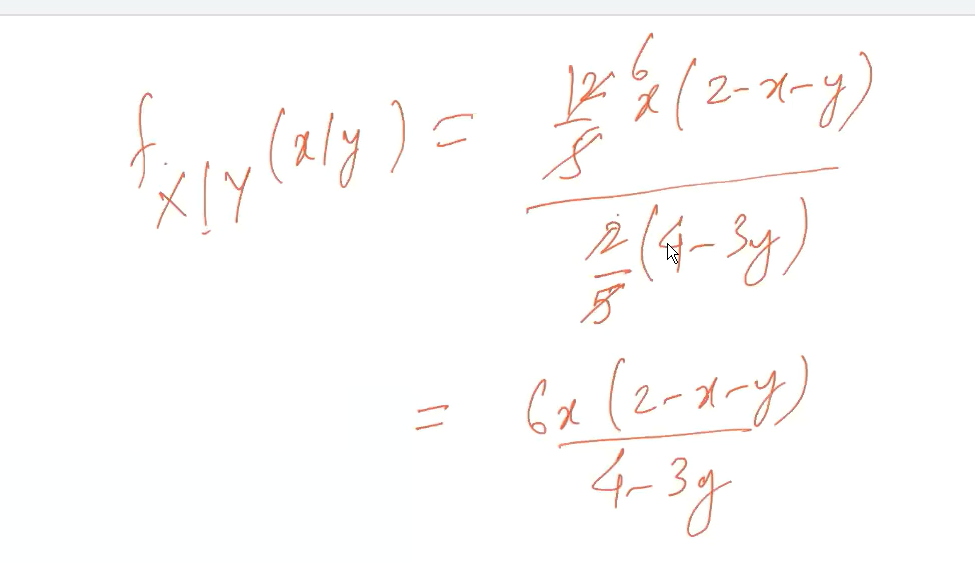 f_{X|Y}(x/y) = \frac{\frac{12}{5} 6 x(2-x-y)}{\frac{2}{5}(4-3y)}
= \frac{6x(2-x-y)}{4-3y}